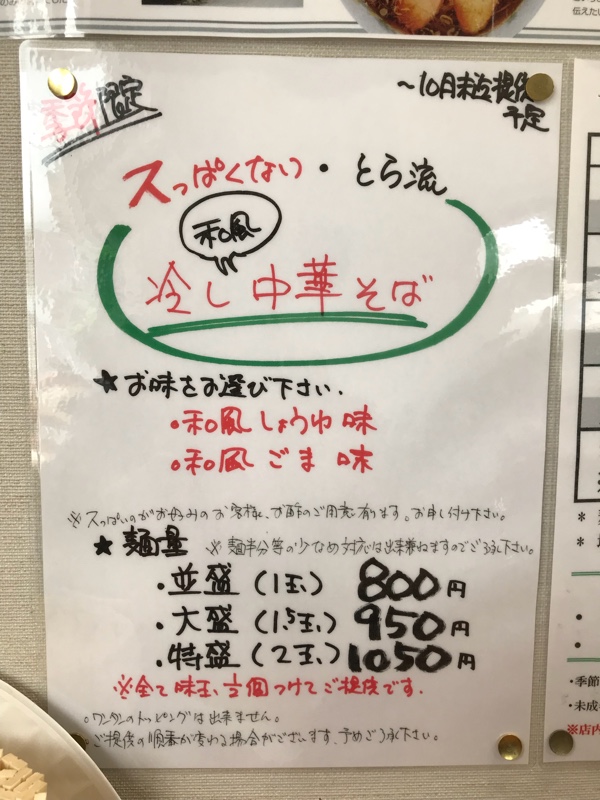 伝えたい
季節限定
～10月末迄提供
予定
スっぱくない・とら流
和風
冷し中華そば
★お味をお選び下さい.
・和風しょうゆ味
・和風ごま味
※スっぱいのがお好みのお客様に、お酢のご用意有ります。お申し付け下さい。
★麺量 ※麺半分等の少なめ対応は出来兼ねますのでご了承下さい。
・並盛(1玉) 800円
・大盛(1.5玉) 950円
・特盛(2玉) 1050円
※全て味玉½個つけてご提供です.
○ワンタンのトッピングは出来ません。
○ご提供の順番が変わる場合がございます、予めご了承下さい。
・季節
・未成
※店内